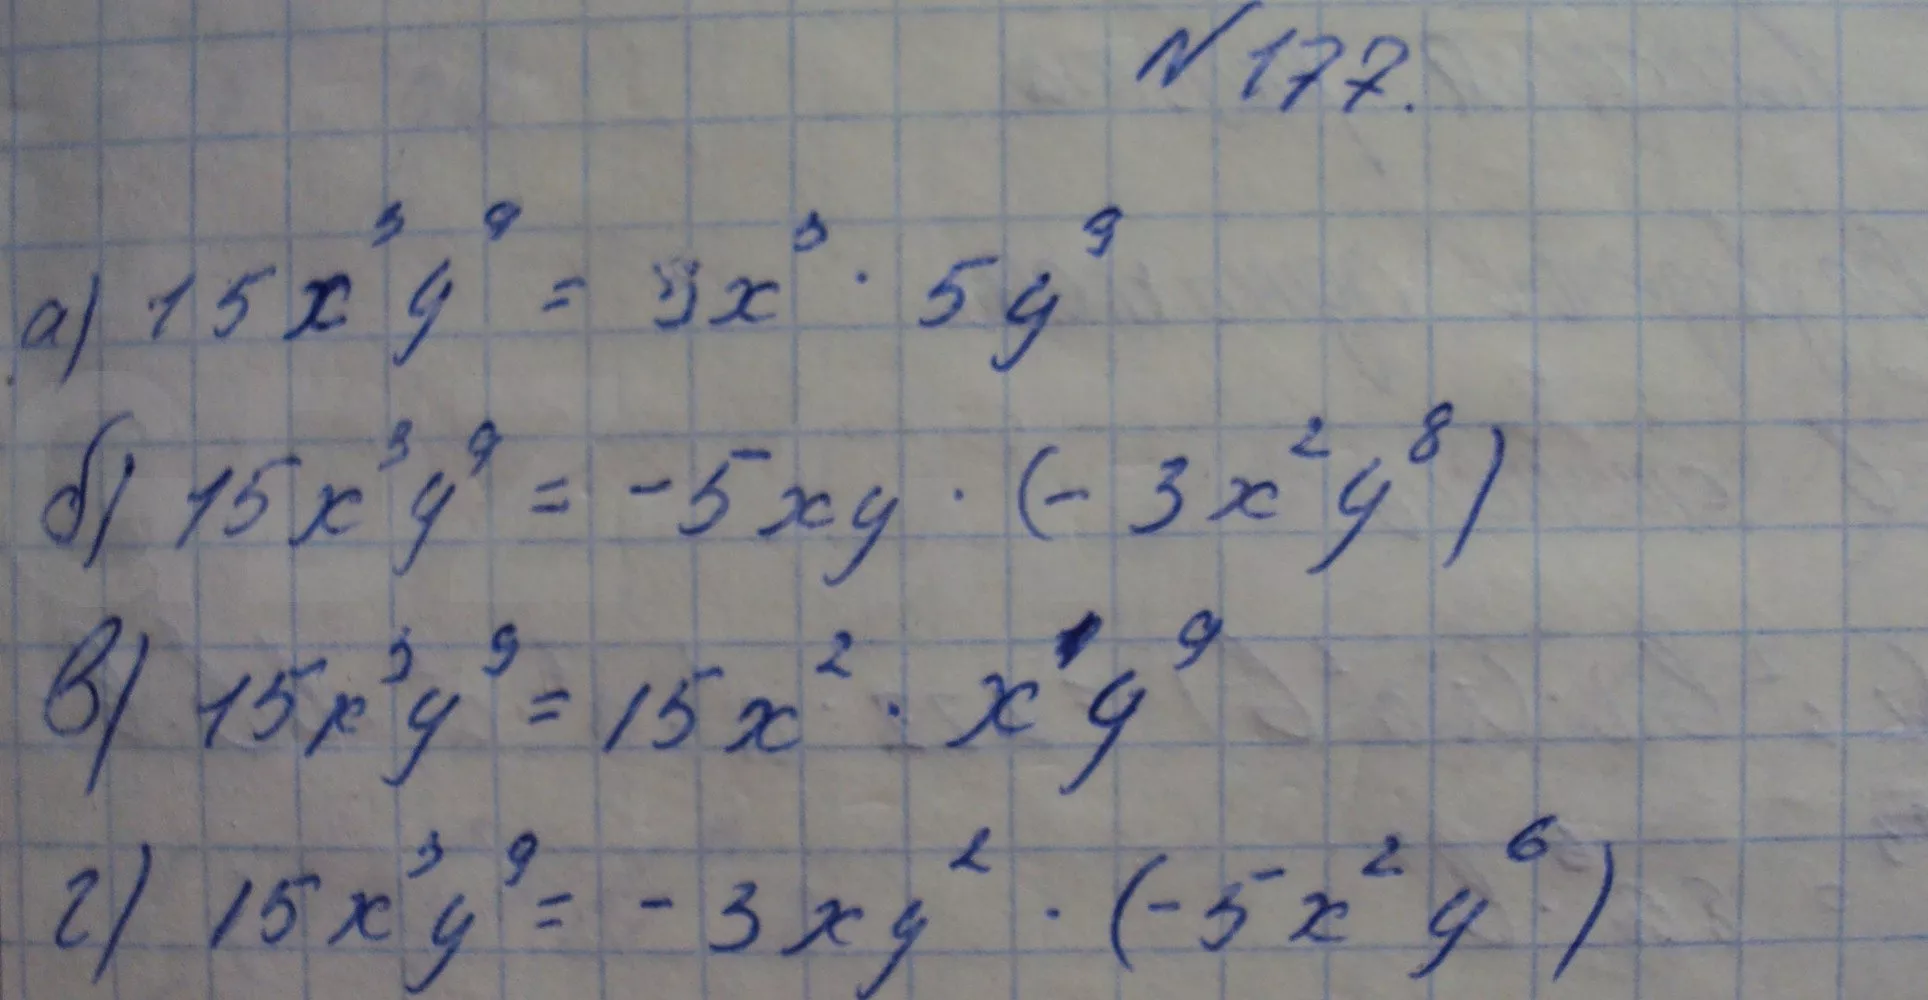 №177.
а) 15x³y⁹ = 3x³ · 5y⁹
б) 15x³y⁹ = -5xy · (-3x²y⁸)
в) 15x³y⁹ = 15x² · x¹y⁹
г) 15x³y⁹ = -3xy² · (-5x²y⁶)